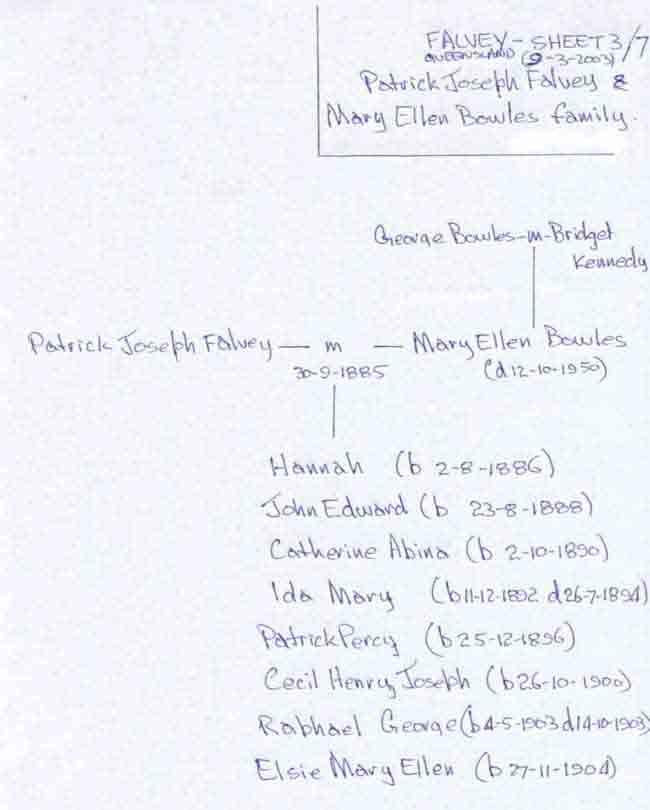 FALVEY - SHEET 3/7
QUEENSLAND (9-3-2003)
Patrick Joseph Falvey &
Mary Ellen Bowles family.
George Bowles-m-Bridget
Kennedy
Patrick Joseph Falvey — m — Mary Ellen Bowles
30-9-1885 (d 12-10-1950)
Hannah (b 2-8-1886)
John Edward (b 23-8-1888)
Catherine Abina (b 2-10-1890)
Ida Mary (b 11-12-1892 d 26-7-1894)
Patrick Percy (b 25-12-1896)
Cecil Henry Joseph (b 26-10-1900)
Raphael George (b 4-5-1903 d 14-10-1903)
Elsie Mary Ellen (b 27-11-1904)